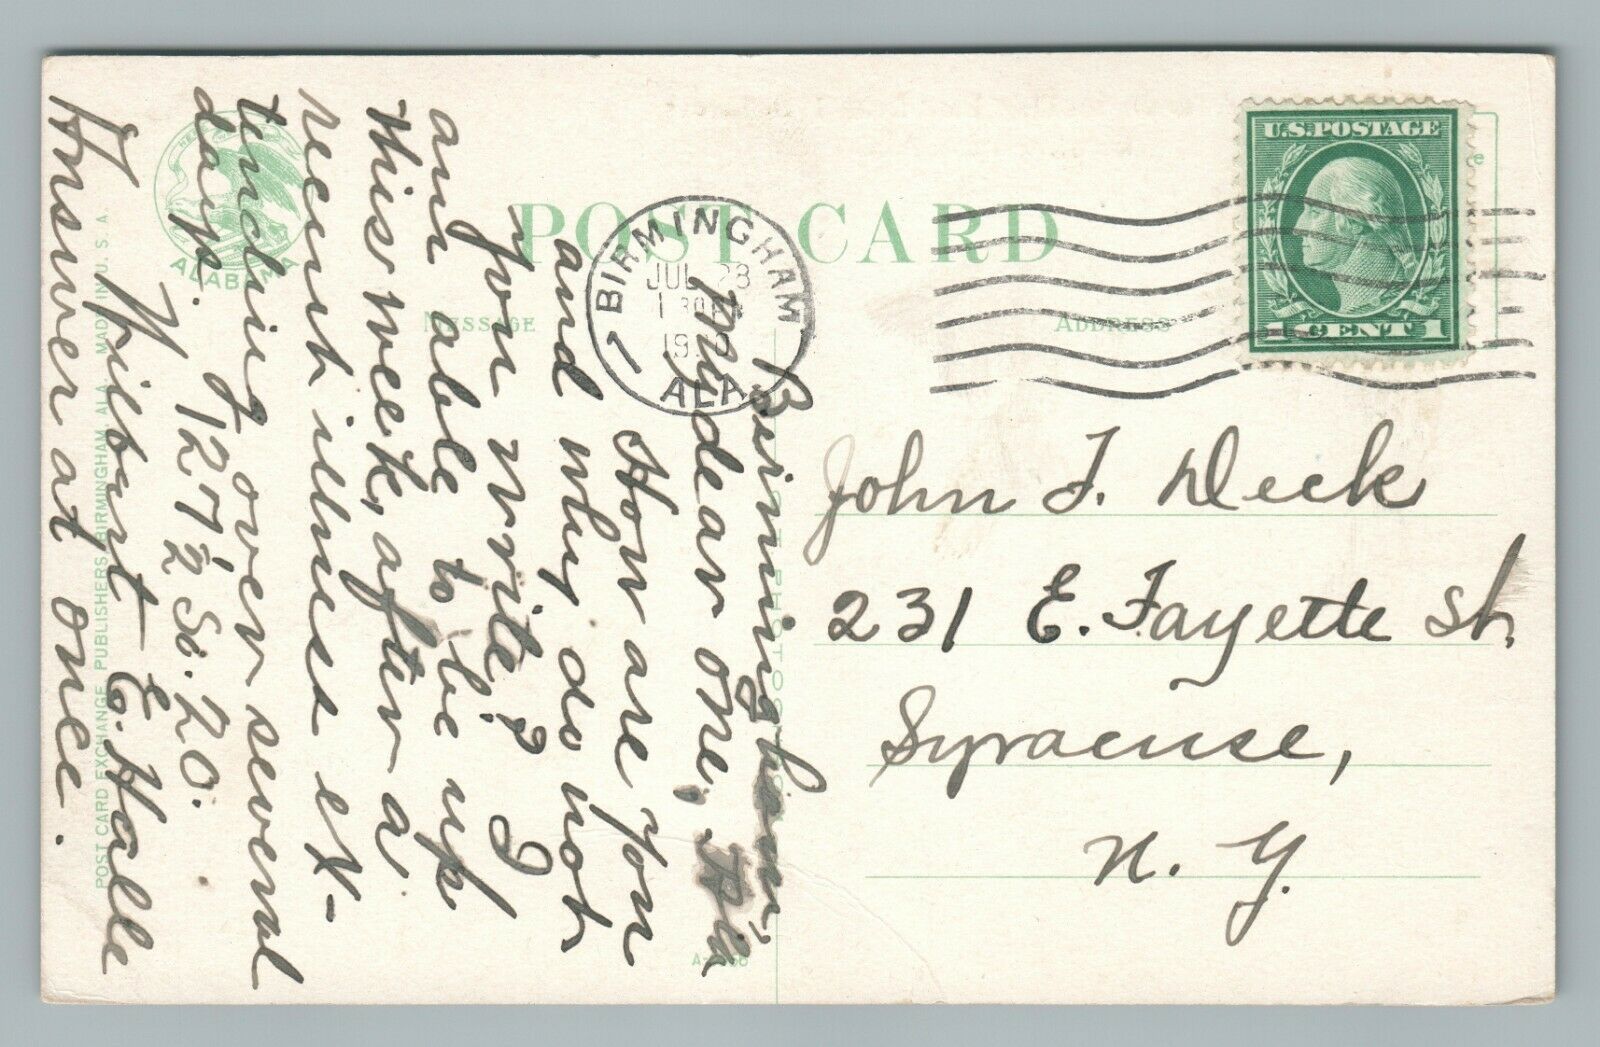 POST CARD
MESSAGE
ADDRESS
ALABAMA
BIRMINGHAM
JUL 28
ALA.
U.S.POSTAGE
1 CENT 1
Birmingham,
My dear one,
How are you
and why do not
you write? I
am able to be up
this week, after a
recent illness ex-
tending over several
days. 127½ So. 20.
Wilburt E. Halle
Answer at once.
John F. Deck
231 E. Fayette St.
Syracuse,
N. Y.
POST CARD EXCHANGE, PUBLISHERS, BIRMINGHAM, ALA. MADE IN U. S. A.